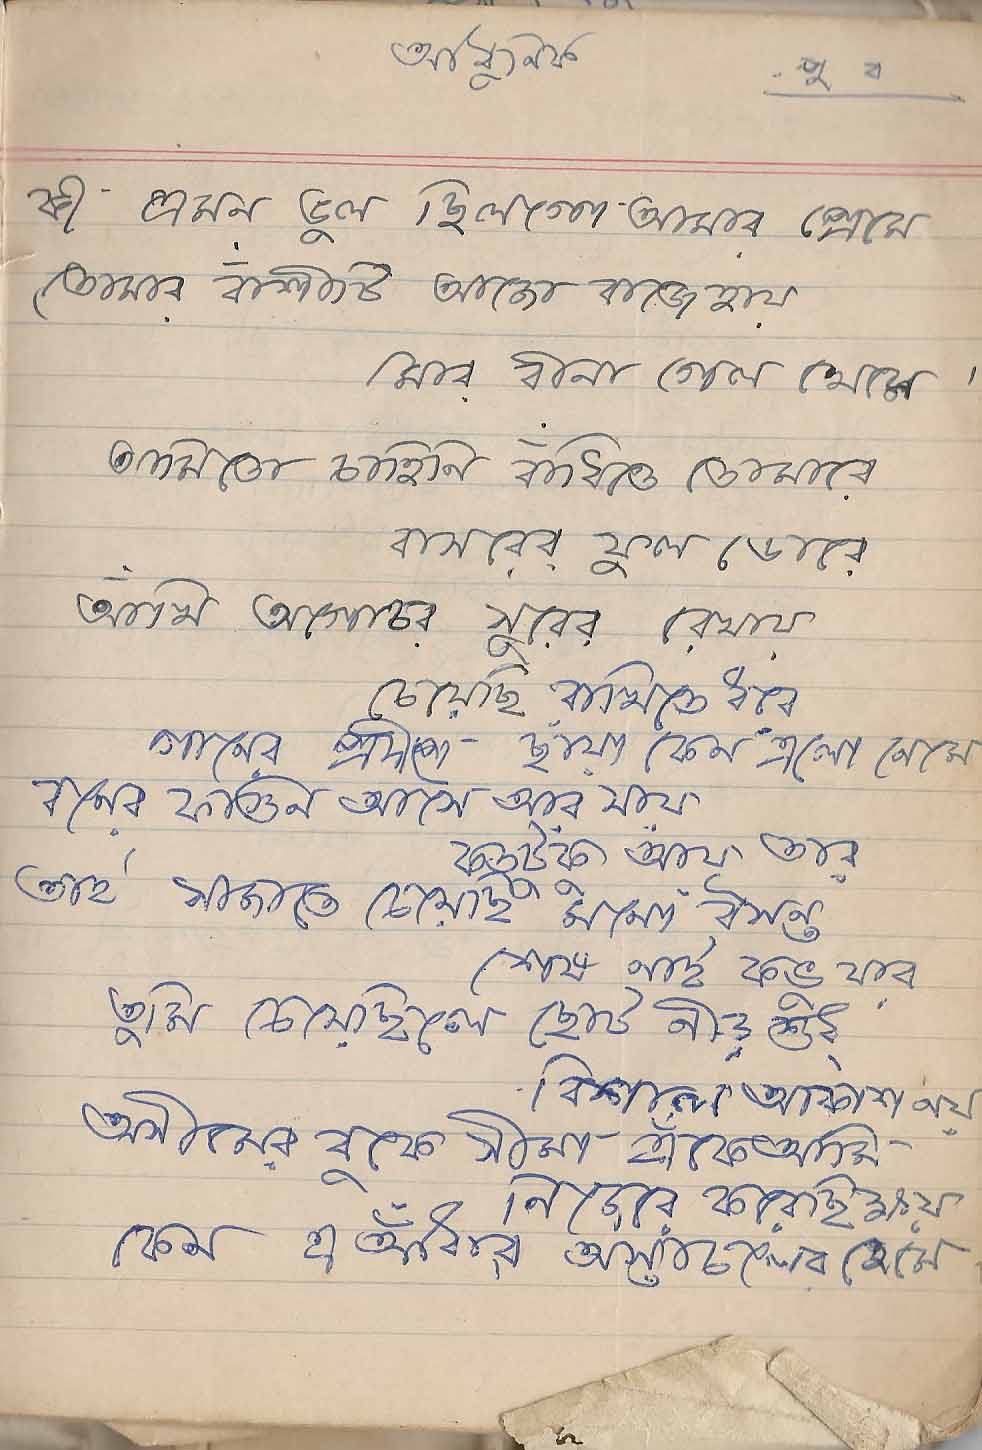 আধুনিক
পু ব
কী এমন ভুল ছিলগো আমার প্রেমে
তোমার বাঁশীটি আজো বাজে হায়
মোর বীনা গেল থেমে।
আমিতো চাহিনি বাঁধিতে তোমারে
বাসরের ফুল ডোরে
আঁখি অগোচর সুরের রেখায়
চেয়েছি রাখিতে ধরে
গানের প্রদীপে ছায়া কেন এলো নেমে
বনের ফাগুন আসে আর যায়
কতটুকু আয়ু তার
তাই সাজাতে চেয়েছি মনের বসন্ত
শেষ নাই কভু যার
তুমি চেয়েছিলে ছোট নীড় শুধু
বিশাল আকাশ নয়
অসীমের বুকে সীমা এঁকে আমি
নিজেরে করেছি ক্ষয়
কেন এ আঁধার অস্তাচলের প্রেমে